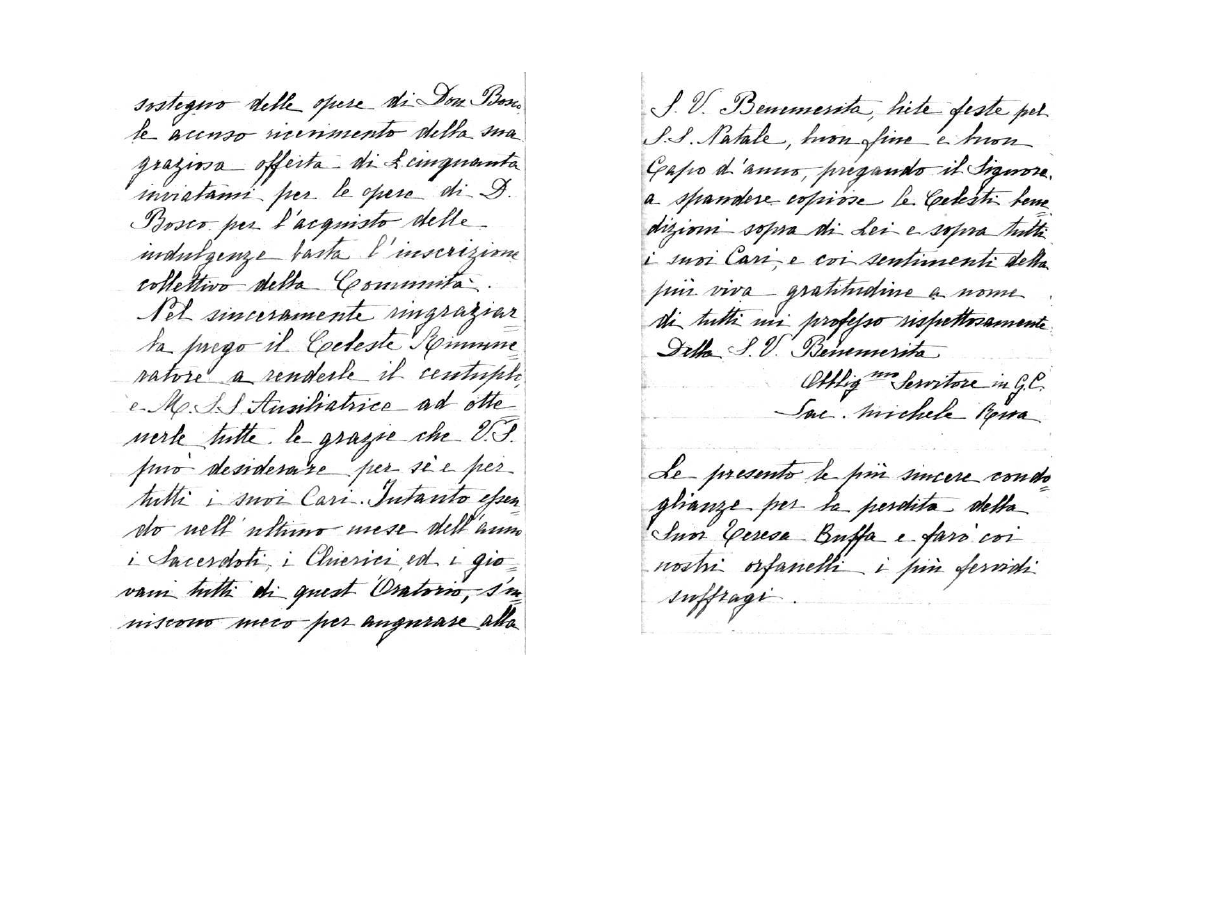 sostegno delle opere di Don Bosco
le accuso ricevimento della sua
graziosa offerta di £ cinquanta
inviatami per le opere di D.
Bosco per l'acquisto delle
indulgenze basta l'inscrizione
collettivo della Comunità.
Nel sinceramente ringraziar=
la prego il Celeste Rimune=
ratore a renderle il centuplo,
e M. SS Ausiliatrice ad otte=
nerle tutte le grazie che V.S.
può desiderare per sè e per
tutti i suoi Cari. Intanto essen=
do nell'ultimo mese dell'anno
i Sacerdoti, i Chierici, ed i gio=
vani tutti di quest'Oratorio, s'u=
niscono meco per augurare alla
S. V. Benemerita, liete feste pel
S.S. Natale, buon fine e buon
Capo d'anno, pregando il Signore,
a spandere copiose le Celesti bene=
dizioni sopra di Lei e sopra tutti
i suoi Cari, e coi sentimenti della
più viva gratitudine a nome
di tutti mi professo rispettosamente
Della S. V. Benemerita
Obblig.mo Servitore in G.C.
Sac. Michele Rua
Le presento le più sincere condo=
glianze per la perdita della
Suor Teresa Buffa e farò coi
nostri orfanelli i più fervidi
suffragi.